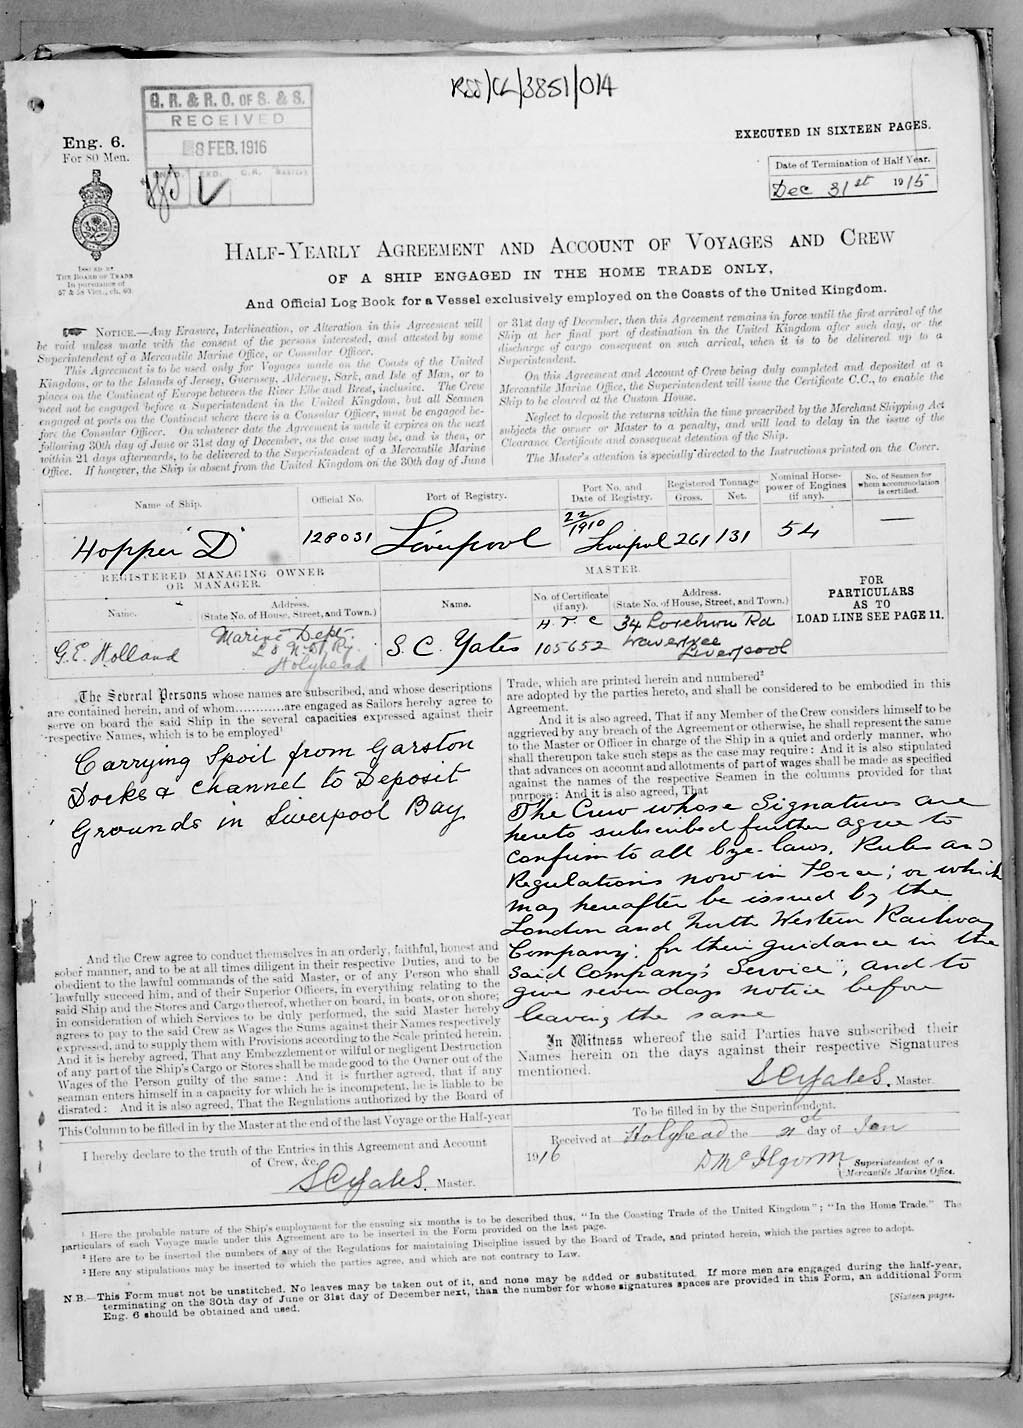 RSS/CL/3851/014
G. R. & R. O. OF S. & S.
RECEIVED
8 FEB. 1916
Eng. 6.
For 80 Men.
EXECUTED IN SIXTEEN PAGES.
Date of Termination of Half Year.
Dec 31st 1915
ISSUED BY
THE BOARD OF TRADE
In pursuance of
57 & 58 Vict., ch. 60.
HALF-YEARLY AGREEMENT AND ACCOUNT OF VOYAGES AND CREW
OF A SHIP ENGAGED IN THE HOME TRADE ONLY,
And Official Log Book for a Vessel exclusively employed on the Coasts of the United Kingdom.
NOTICE.—Any Erasure, Interlineation, or Alteration in this Agreement will
be void unless made with the consent of the persons interested, and attested by some
Superintendent of a Mercantile Marine Office, or Consular Officer.
This Agreement is to be used only for Voyages made on the Coasts of the United
Kingdom, or to the Islands of Jersey, Guernsey, Alderney, Sark, and Isle of Man, or to
places on the Continent of Europe between the River Elbe and Brest, inclusive. The Crew
need not be engaged before a Superintendent in the United Kingdom, but all Seamen
engaged at ports on the Continent where there is a Consular Officer, must be engaged be-
fore the Consular Officer. On whatever date the Agreement is made it expires on the next
following 30th day of June or 31st day of December, as the case may be, and is then, or
within 21 days afterwards, to be delivered to the Superintendent of a Mercantile Marine
Office. If however, the Ship is absent from the United Kingdom on the 30th day of June
or 31st day of December, then this Agreement remains in force until the first arrival of the
Ship at her final port of destination in the United Kingdom after such day, or the
discharge of cargo consequent on such arrival, when it is to be delivered up to a
Superintendent.
On this Agreement and Account of Crew being duly completed and deposited at a
Mercantile Marine Office, the Superintendent will issue the Certificate C.C., to enable the
Ship to be cleared at the Custom House.
Neglect to deposit the returns within the time prescribed by the Merchant Shipping Act
subjects the owner or Master to a penalty, and will lead to delay in the issue of the
Clearance Certificate and consequent detention of the Ship.
The Master's attention is specially directed to the Instructions printed on the Cover.
Name of Ship. Official No. Port of Registry. Port No. and Date of Registry. Registered Tonnage Gross. Net. Nominal Horse-power of Engines (if any). No. of Seamen for whom accommodation is certified.
Hopper "D" 128031 Liverpool 22/1910 Liverpool 261 131 54 —
REGISTERED MANAGING OWNER OR MANAGER.
MASTER.
Name. Address. (State No. of House, Street, and Town.) Name. No. of Certificate (if any). Address. (State No. of House, Street, and Town.)
FOR PARTICULARS AS TO LOAD LINE SEE PAGE 11.
G.E. Holland Marine Dept. L & N.W. Ry. Holyhead
S. C. Yates H. T. C 105652 34 Rd Liverpool
The Several Persons whose names are subscribed, and whose descriptions
are contained herein, and of whom............are engaged as Sailors hereby agree to
serve on board the said Ship in the several capacities expressed against their
respective Names, which is to be employed¹
Carrying Spoil from Garston
Docks & Channel to Deposit
Grounds in Liverpool Bay
And the Crew agree to conduct themselves in an orderly, faithful, honest and
sober manner, and to be at all times diligent in their respective Duties, and to be
obedient to the lawful commands of the said Master, or of any Person who shall
lawfully succeed him, and of their Superior Officers, in everything relating to the
said Ship and the Stores and Cargo thereof, whether on board, in boats, or on shore;
in consideration of which Services to be duly performed, the said Master hereby
agrees to pay to the said Crew as Wages the Sums against their Names respectively
expressed, and to supply them with Provisions according to the Scale printed herein.
And it is hereby agreed, That any Embezzlement or wilful or negligent Destruction
of any part of the Ship's Cargo or Stores shall be made good to the Owner out of the
Wages of the Person guilty of the same: And it is further agreed, that if any
seaman enters himself in a capacity for which he is incompetent, he is liable to be
disrated: And it is also agreed, That the Regulations authorized by the Board of
Trade, which are printed herein and numbered²
are adopted by the parties hereto, and shall be considered to be embodied in this
Agreement.
And it is also agreed, That if any Member of the Crew considers himself to be
aggrieved by any breach of the Agreement or otherwise, he shall represent the same
to the Master or Officer in charge of the Ship in a quiet and orderly manner, who
shall thereupon take such steps as the case may require: And it is also stipulated
that advances on account and allotments of part of wages shall be made as specified
against the names of the respective Seamen in the columns provided for that
purpose: And it is also agreed, That
The Crew whose Signatures are
hereto subscribed further agree to
confirm to all bye-laws, Rules and
Regulations now in Force; or which
may hereafter be issued by the
London and North Western Railway
Company: for their guidance in the
said Company's Service", and to
give seven days notice before
leaving the same
In Witness whereof the said Parties have subscribed their
Names herein on the days against their respective Signatures
mentioned.
SCYates. Master.
This Column to be filled in by the Master at the end of the last Voyage or the Half-year
I hereby declare to the truth of the Entries in this Agreement and Account
of Crew, &c.
SCYates. Master.
To be filled in by the Superintendent.
Received at Holyhead the 21st day of Jan
1916
Superintendent of a
Mercantile Marine Office.
¹ Here the probable nature of the Ship's employment for the ensuing six months is to be described thus, "In the Coasting Trade of the United Kingdom"; "In the Home Trade." The
particulars of each Voyage made under this Agreement are to be inserted in the Form provided on the last page.
² Here are to be inserted the numbers of any of the Regulations for maintaining Discipline issued by the Board of Trade, and printed herein, which the parties agree to adopt.
³ Here any stipulations may be inserted to which the parties agree, and which are not contrary to Law.
N.B.—This Form must not be unstitched. No leaves may be taken out of it, and none may be added or substituted. If more men are engaged during the half-year,
terminating on the 30th day of June or 31st day of December next, than the number for whose signatures spaces are provided in this Form, an additional Form
Eng. 6 should be obtained and used.
[Sixteen pages.